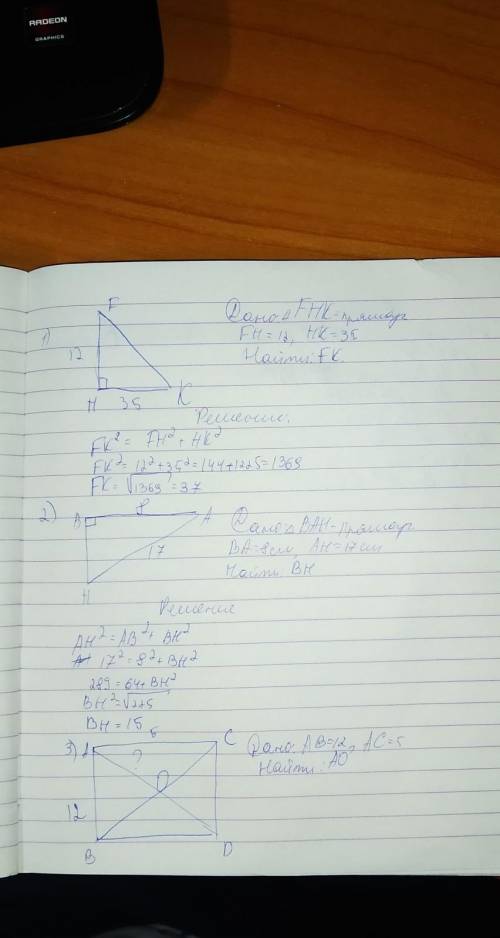 RADEON
GRAPHICS
F
Дано △ FHK - прямоуг
1)
FH = 12, HK = 35
12
Найти: FK.
H 35 K
Решение.
FK² = FH² + HK²
FK² = 12² + 35² = 144 + 1225 = 1369
FK = √1369 = 37
2) B 8 A
Дано △ BAH - прямоуг
17
BA = 8 см, AH = 17 см
Найти: BH
H
Решение
AH² = AB² + BH²
17² = 8² + BH²
289 = 64 + BH²
BH² = √225
BH = 15
3) A 5 C
Дано: AB = 12, AC = 5
?
Найти: AO
O
12
B D